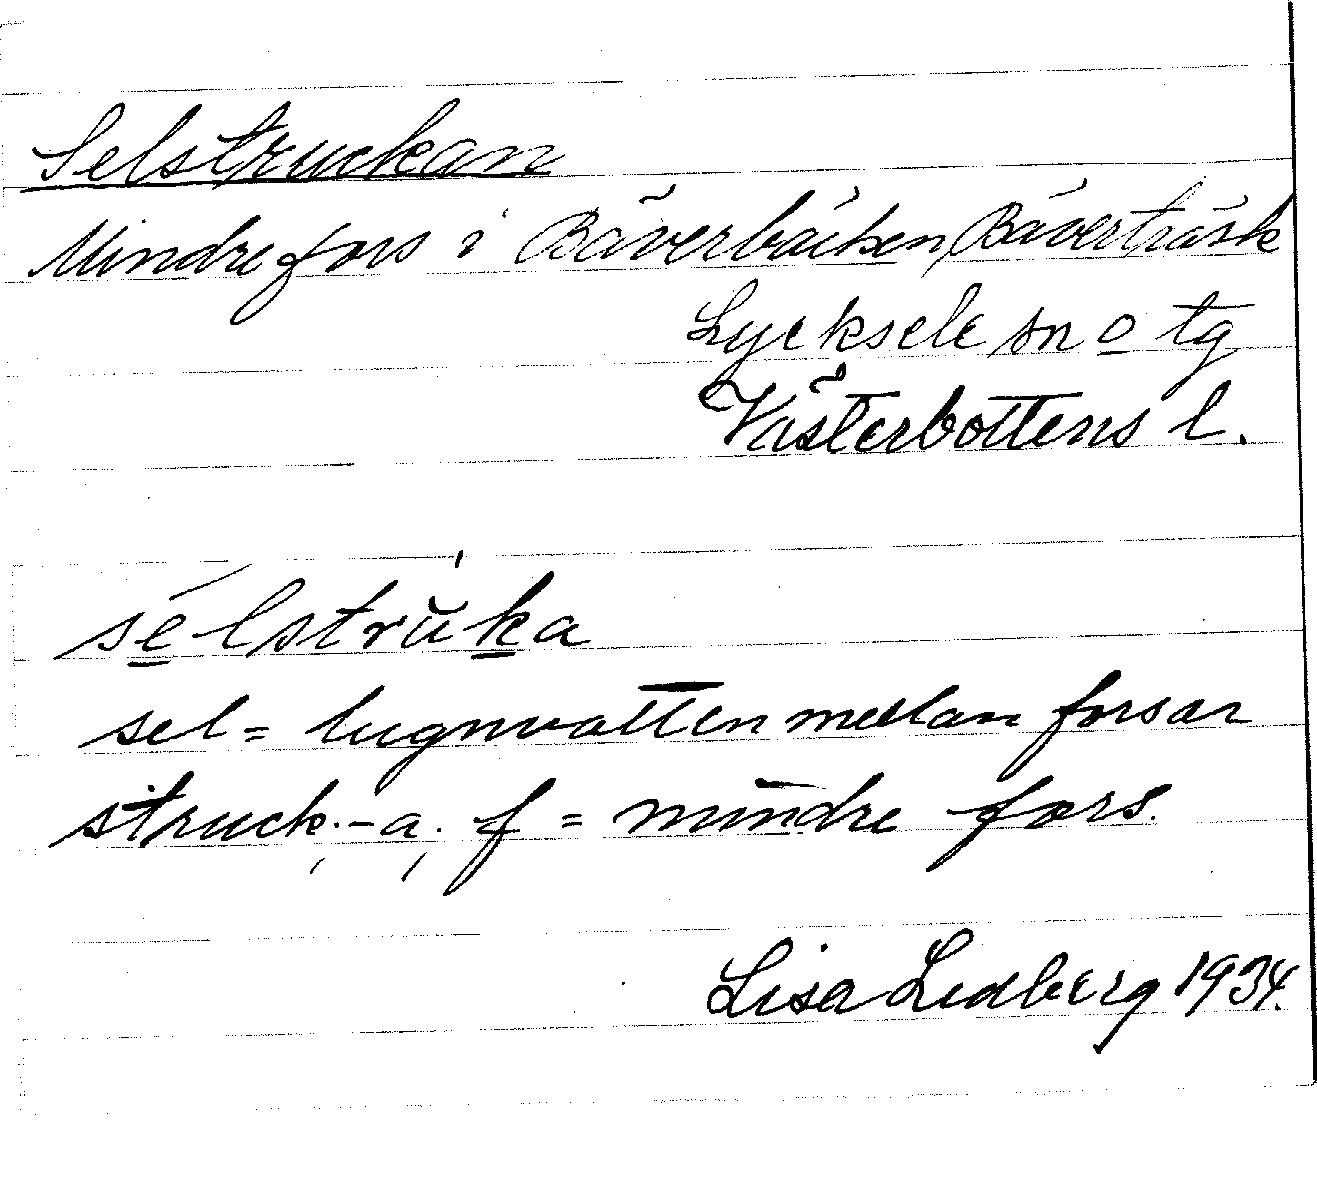 Selstruckan
Mindre fors i Bäverbäcken, Bäverträsk
Lycksele sn o tg
Västerbottens l.
sélstrŭka
sel = lugnvatten mellan forsar
struck.-a. f = mindre fors.
Lisa Lidberg 1934.